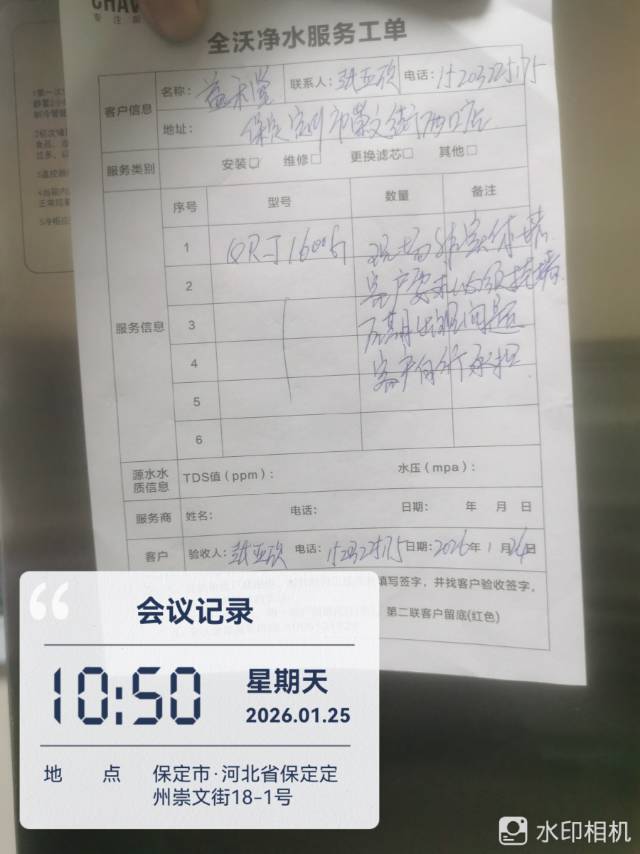 CHAV
专注
全沃净水服务工单
客户信息
名称：益禾堂 联系人：张亚欣 电话：
地址：保定定州市崇文街西口店
服务类别 安装□ 维修□ 更换滤芯□ 其他□
服务信息
序号 型号 数量 备注
1 QR-J1600G 现场非实体墙
2 客户要求必须挂墙
3 后期出现问题
4 客户自行承担
5
6
源水水质信息 TDS值（ppm）： 水压（mpa）：
服务商 姓名： 电话： 日期： 年 月 日
客户 验收人：张亚欣 电话： 日期：2026年1月24日
填写签字，并找客户验收签字，
第二联客户留底(红色)
会议记录
10:50 星期天
2026.01.25
地 点 保定市·河北省保定定
州崇文街18-1号
水印相机